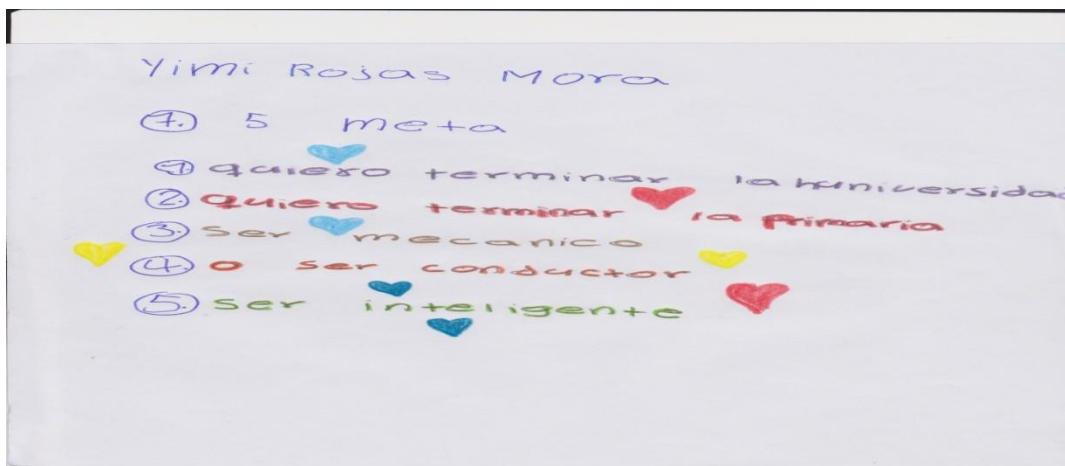 Yimi Rojas Mora
7. 5 meta
1 quiero terminar la huniversidad
2. Quiero terminar la primaria
3. Ser mecanico
4. o ser conductor
5. Ser inteligente